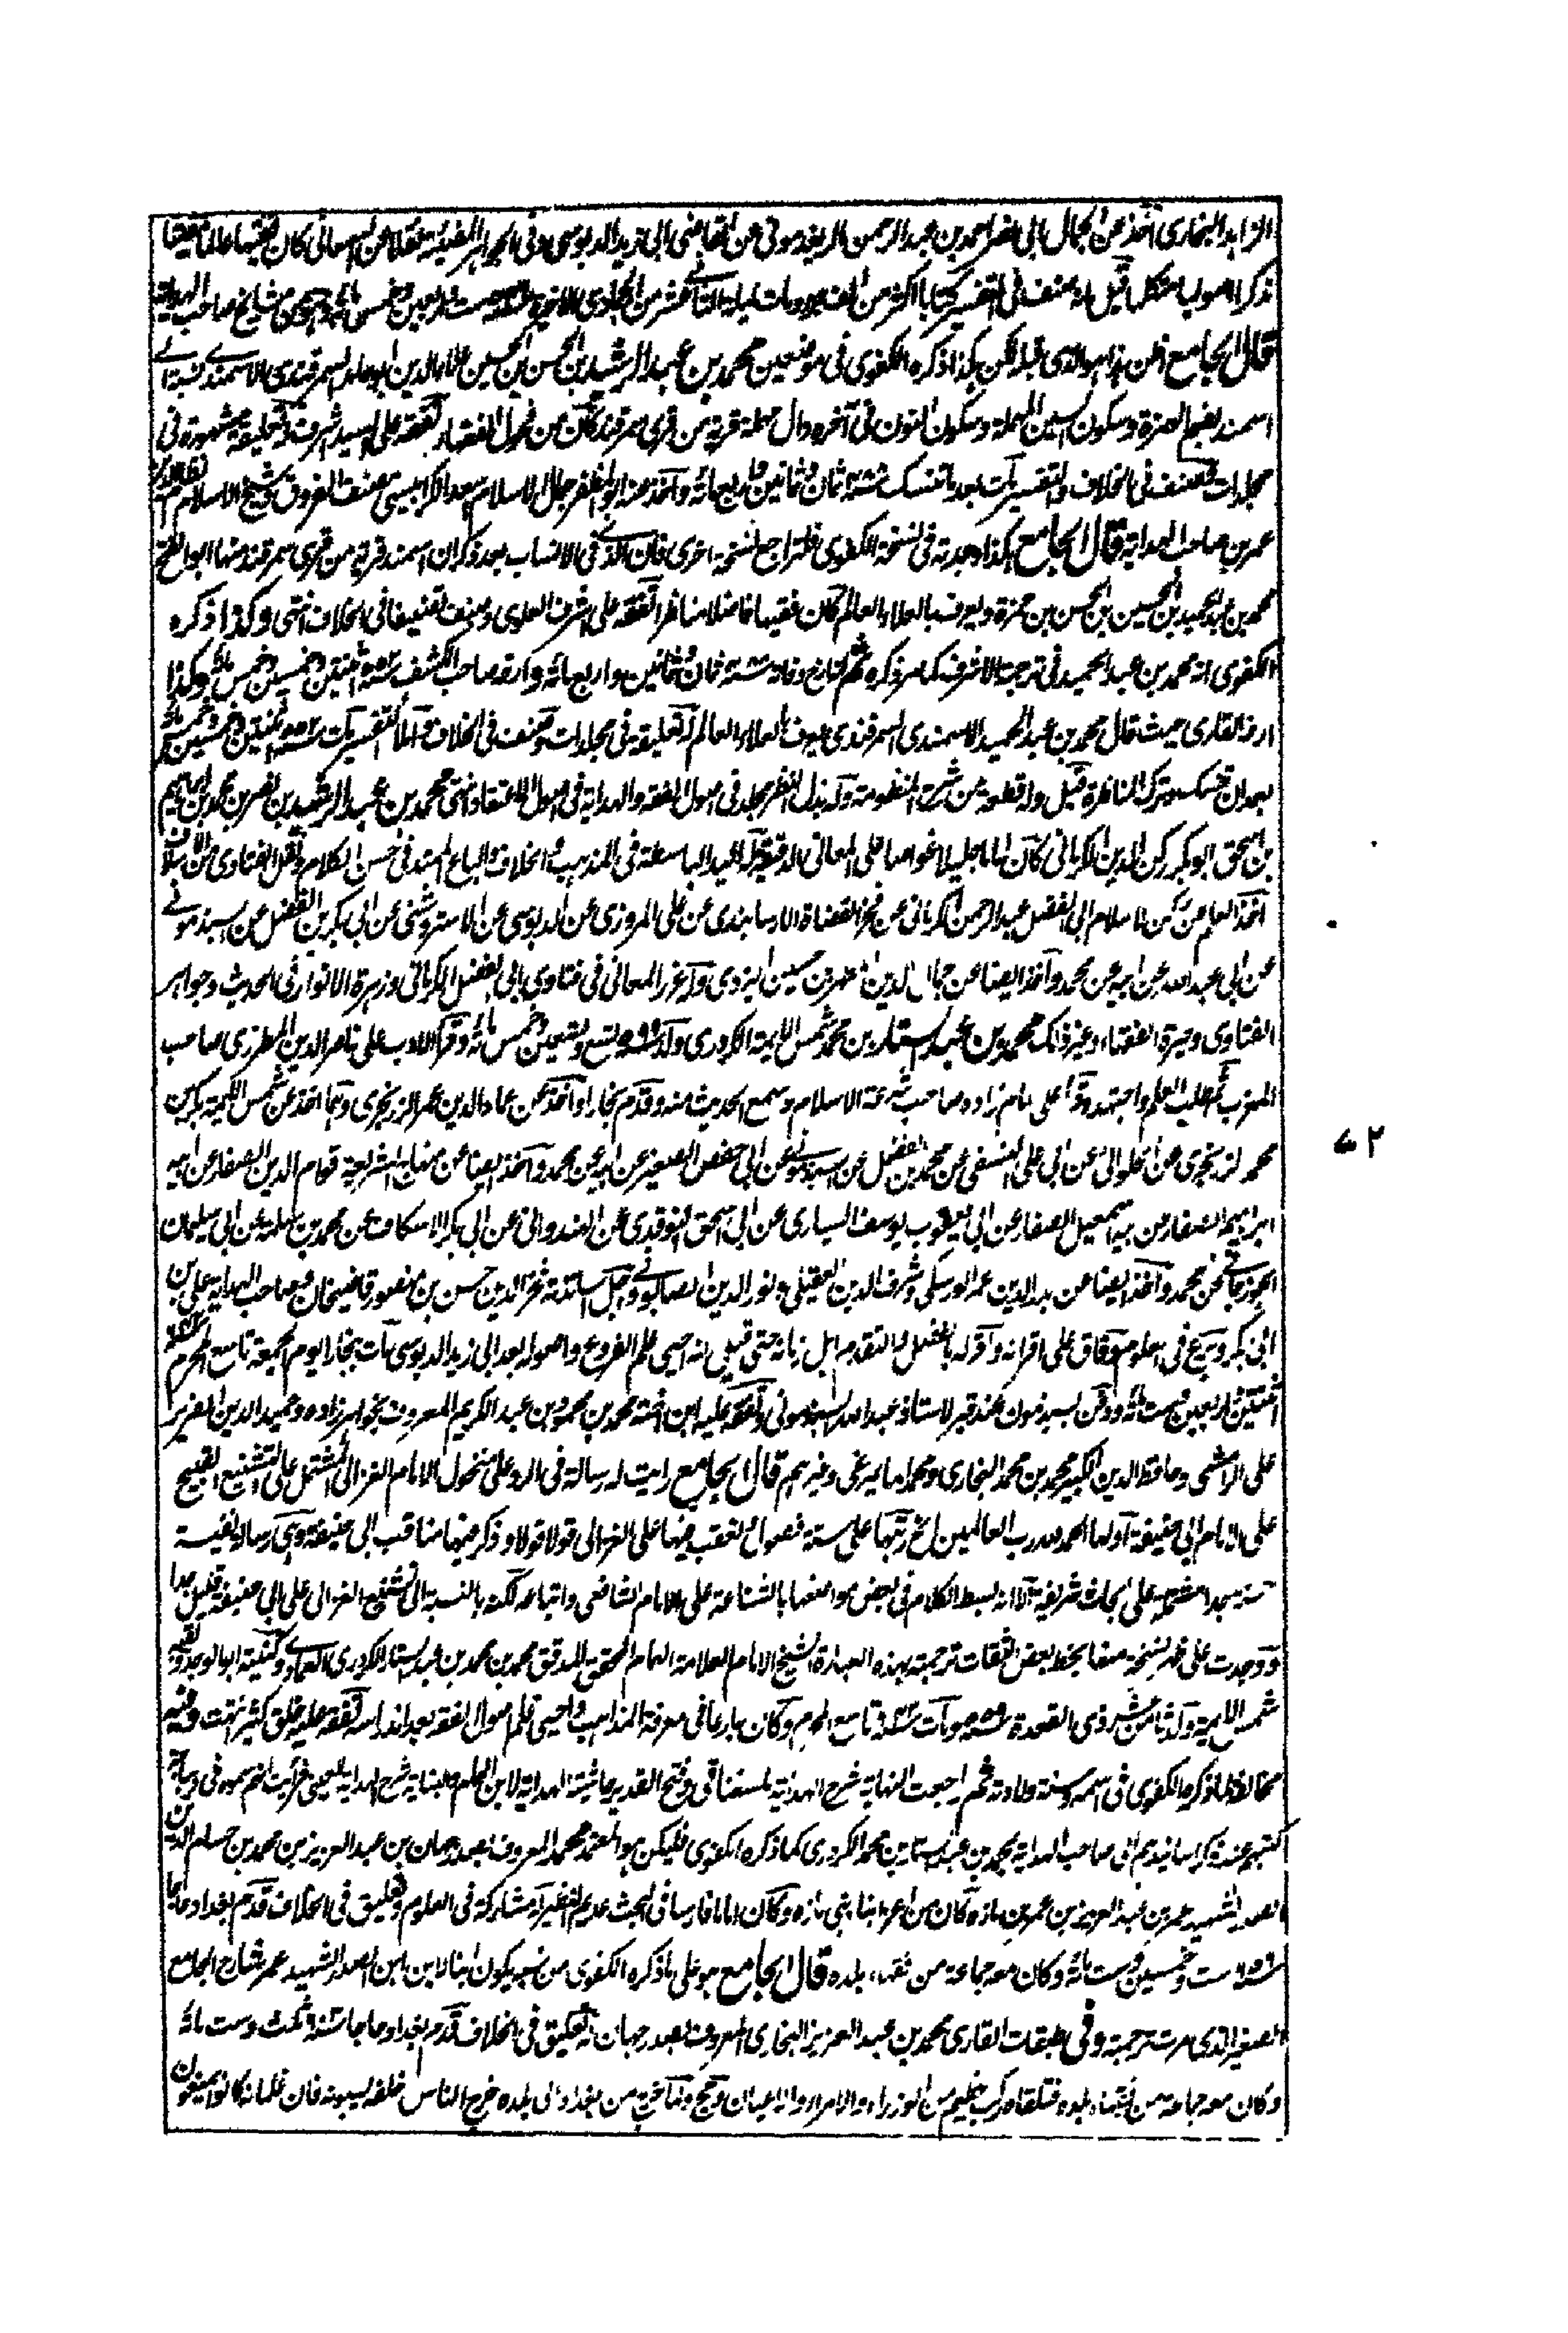 الزاهد البخاري اخذ عن الجمال ابي نصر احمد بن عبد الرحمن الريغدموني عن القاضي ابي زيد الدبوسي وفي الجواهر المضية نقلا عن السمعاني كان فقيها عالما مفتيا
مذكرا اصوليا متكلما قيل انه صنف في التفسير كتابا اكثر من الف جزء ومات ليلة الثاني عشر من الجمادى الاخرى سنة ست واربعين وخمس مائة وهو من مشايخ صاحب الهداية
قال الجامع اظن هذا هو الذي قبله لكن هكذا ذكره الكفوي في موضعين محمد بن عبد الرشيد بن الحسن بن الحسين علاء الدين ابو حامد السمرقندي الاسمندي نسبة الى
اسمند بضم الهمزة وسكون السين المهملة وسكون النون في آخره دال مهملة قرية من قرى سمرقند كان من فحول الفقهاء تفقه على السيد الاشرف وله تعليقة مشهورة في
مجلدات وصنف في الخلاف والتفسير مات بعد ما تنسك سنة ثمان وثمانين واربع مائة واخذ عنه ابو المظفر جمال الاسلام اسعد الكرابيسي مصنف الفروق وشيخ الاسلام نظام الدين
عمر بن صاحب الهداية قال الجامع هكذا وجدته في نسخة الكفوي فلتراجع نسخة اخرى فان الذي في الانساب بعد ذكر ان اسمند قرية من قرى سمرقند منها ابو الفتح
محمد بن عبد الحميد بن الحسين بن الحسن بن حمزة ويعرف بالعلاء العالم كان فقيها فاضلا مناظرا تفقه على اشرف العلوي وصنف تصنيفا في الخلاف انتهى وكذا ذكره
الكفوي انه محمد بن عبد الحميد في ترجمة الاشرف كما مر ذكره ثم التاريخ وفاته سنة ثمان وثمانين واربع مائة وارخه صاحب الكشف سنة اثنتين وخمسين وخمس مائة وكذا
ارخ القاري حيث قال محمد بن عبد الحميد الاسمندي السمرقندي عرف بالعلاء العالم له تعليقة في مجلدات وصنف في الخلاف واملأ التفسير مات سنة اثنتين وخمسين وخمس مائة
بعد ان تنسك وترك المناظرة قيل وله قطعة من شرح المنظومة وله بذل النظر مجلد في اصول الفقه والهداية في اصول الاعتقاد انتهى محمد بن عبد الرشيد بن نصر بن محمد بن ابراهيم
بن اسحق ابو بكر ركن الدين الكرماني كان اماما جليلا غواصا على المعاني الدقيقة له اليد الباسطة في المذهب والخلاف والباع الممتد في حسن الكلام ونقل الفتاوى من الاسلاف
اخذ العلم عن ركن الاسلام ابي الفضل عبد الرحمن الكرماني عن فخر القضاة الارسابندي عن علي المروزي عن الدبوسي عن الاستروشني عن ابي بكر بن الفضل عن السبذموني
عن ابي عبد الله عن ابيه عن محمد واخذ ايضا عن جمال الدين المطهر بن حسين اليزدي وله غرر المعاني في فتاوى ابي الفضل الكرماني وزهرة الانوار في الحديث وجواهر
الفتاوى وحيرة الفقهاء وغير ذلك محمد بن عبد الستار بن محمد شمس الايمة الكردري ولد سنة ٥٩٩ تسع وتسعين وخمس مائة وقرأ الادب على ناصر الدين المطرزي صاحب
المغرب ثم طلب العلم واجتهد وقرأ على امام زاده صاحب شرعة الاسلام وسمع الحديث منه وقدم بخارا واخذ عن عماد الدين عمر الزرنجري وهما اخذ عن شمس الايمة بكر بن
محمد الزرنجري عن الحلواني عن ابي علي النسفي عن محمد بن الفضل عن السبذموني عن ابي حفص الصغير عن ابيه عن محمد واخذ ايضا عن منهاج الشريعة قوام الدين الصفار عن ابيه
ابراهيم الصفار عن ابيه اسمعيل الصفار عن ابي يعقوب يوسف السياري عن ابي اسحق النوقدي عن الهندواني عن ابي بكر الاسكاف عن محمد بن سلمة عن ابي سليمان
الجوزجاني عن محمد واخذ ايضا عن بدر الدين عمر الورسكي وشرف الدين العقيلي ونور الدين الصابوني واجل اساتذته فخر الدين حسن بن منصور قاضيخان وصاحب الهداية علي بن
ابي بكر وبرع في العلوم وفاق على اقرانه واقر له بالفضل والتقدم اهل زمانه حتى قيل انه احيى علم الفروع واصوله بعد ابي زيد الدبوسي مات ببخارا يوم الجمعة تاسع المحرم سنة
اثنتين واربعين وست مائة ودفن بسبذمون عند قبر الاستاذ عبد الله السبذموني وتفقه عليه ابن اخته محمد بن محمود بن عبد الكريم المعروف بخواهرزاده وحميد الدين الضرير
علي الرامشي وحافظ الدين الكبير محمد بن محمد البخاري ومحمد المايمرغي وغيرهم قال الجامع رايت له رسالة في الرد على منخول الامام الغزالي المشتمل على التشنيع القبيح
على الامام ابي حنيفة اولها الحمد لله رب العالمين الخ رتبها على ستة فصول تعقب فيها على الغزالي قولا قولا وذكر فيها مناقب ابي حنيفة وهي رسالة نفيسة
حسنة جدا مشتملة على ابحاث شريفة الا انه بسط الكلام في بعض مواضعها بالشناعة على الامام الشافعي واتباعه لكنه بالنسبة الى تشنيع الغزالي على ابي حنيفة قليل جدا
ووجدت على ظهر نسخة منها بخط بعض الثقات ترجمته بهذه العبارة الشيخ الامام العلامة الهمام المحقق المدقق محمد بن محمد بن عبد الستار الكردري العمادي وكنيته ابو الوجد ولقبه
شمس الايمة ولد ثامن عشر ذي القعدة سنة ومات سنة تاسع المحرم وكان بارعا في معرفة المذاهب واحيى علم اصول الفقه بعد اندراسه تفقه عليه خلق كثير انتهت وفيه
مخالفة لما ذكره الكفوي في اسمه وسنة ولادته ثم راجعت النهاية شرح الهداية للسغناقي وفتح القدير حاشية الهداية لابن الهمام والبناية شرح الهداية للعيني فرأيت انهم سموه في ديباجة
كتبهم عند ذكر اسانيدهم الى صاحب الهداية بمحمد بن عبد الستار بن محمد الكردري كما ذكره الكفوي فليكن هو المعتمد محمد المعروف بصدر جهان بن عبد العزيز بن محمد بن حسام الدين
الصدر الشهيد عمر بن عبد العزيز بن عمر بن مازه كان من اعز ابناء بني مازه وكان اماما فارسا في البحث عديم النظير له مشاركة في العلوم وتعليق في الخلاف قدم بغداد حاجا
سنة ست وخمسين وست مائة وكان معه جماعة من فقهاء بلده قال الجامع هو على ما ذكره الكفوي من نسبه يكون ابنا لابن ابن الصدر الشهيد عمر شارح الجامع
الصغير الذي مرت ترجمته وفي طبقات القاري محمد بن عبد العزيز البخاري المعروف بصدر جهان له تعليق في الخلاف قدم بغداد حاجا سنة ثلث وست مائة
وكان معه جماعة من فقهاء بلده فتلقاه موكب عظيم من الوزراء والامراء والاعيان وحج ولما خرج من بغداد الى بلده خرج الناس خلفه يسبونه فان غلمانه كانوا يمنعون
٧٢